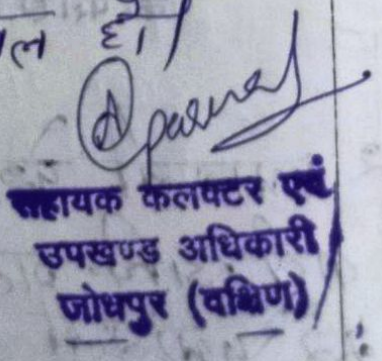 ल हो।
सहायक कलक्टर एवं
उपखण्ड अधिकारी
जोधपुर (दक्षिण)